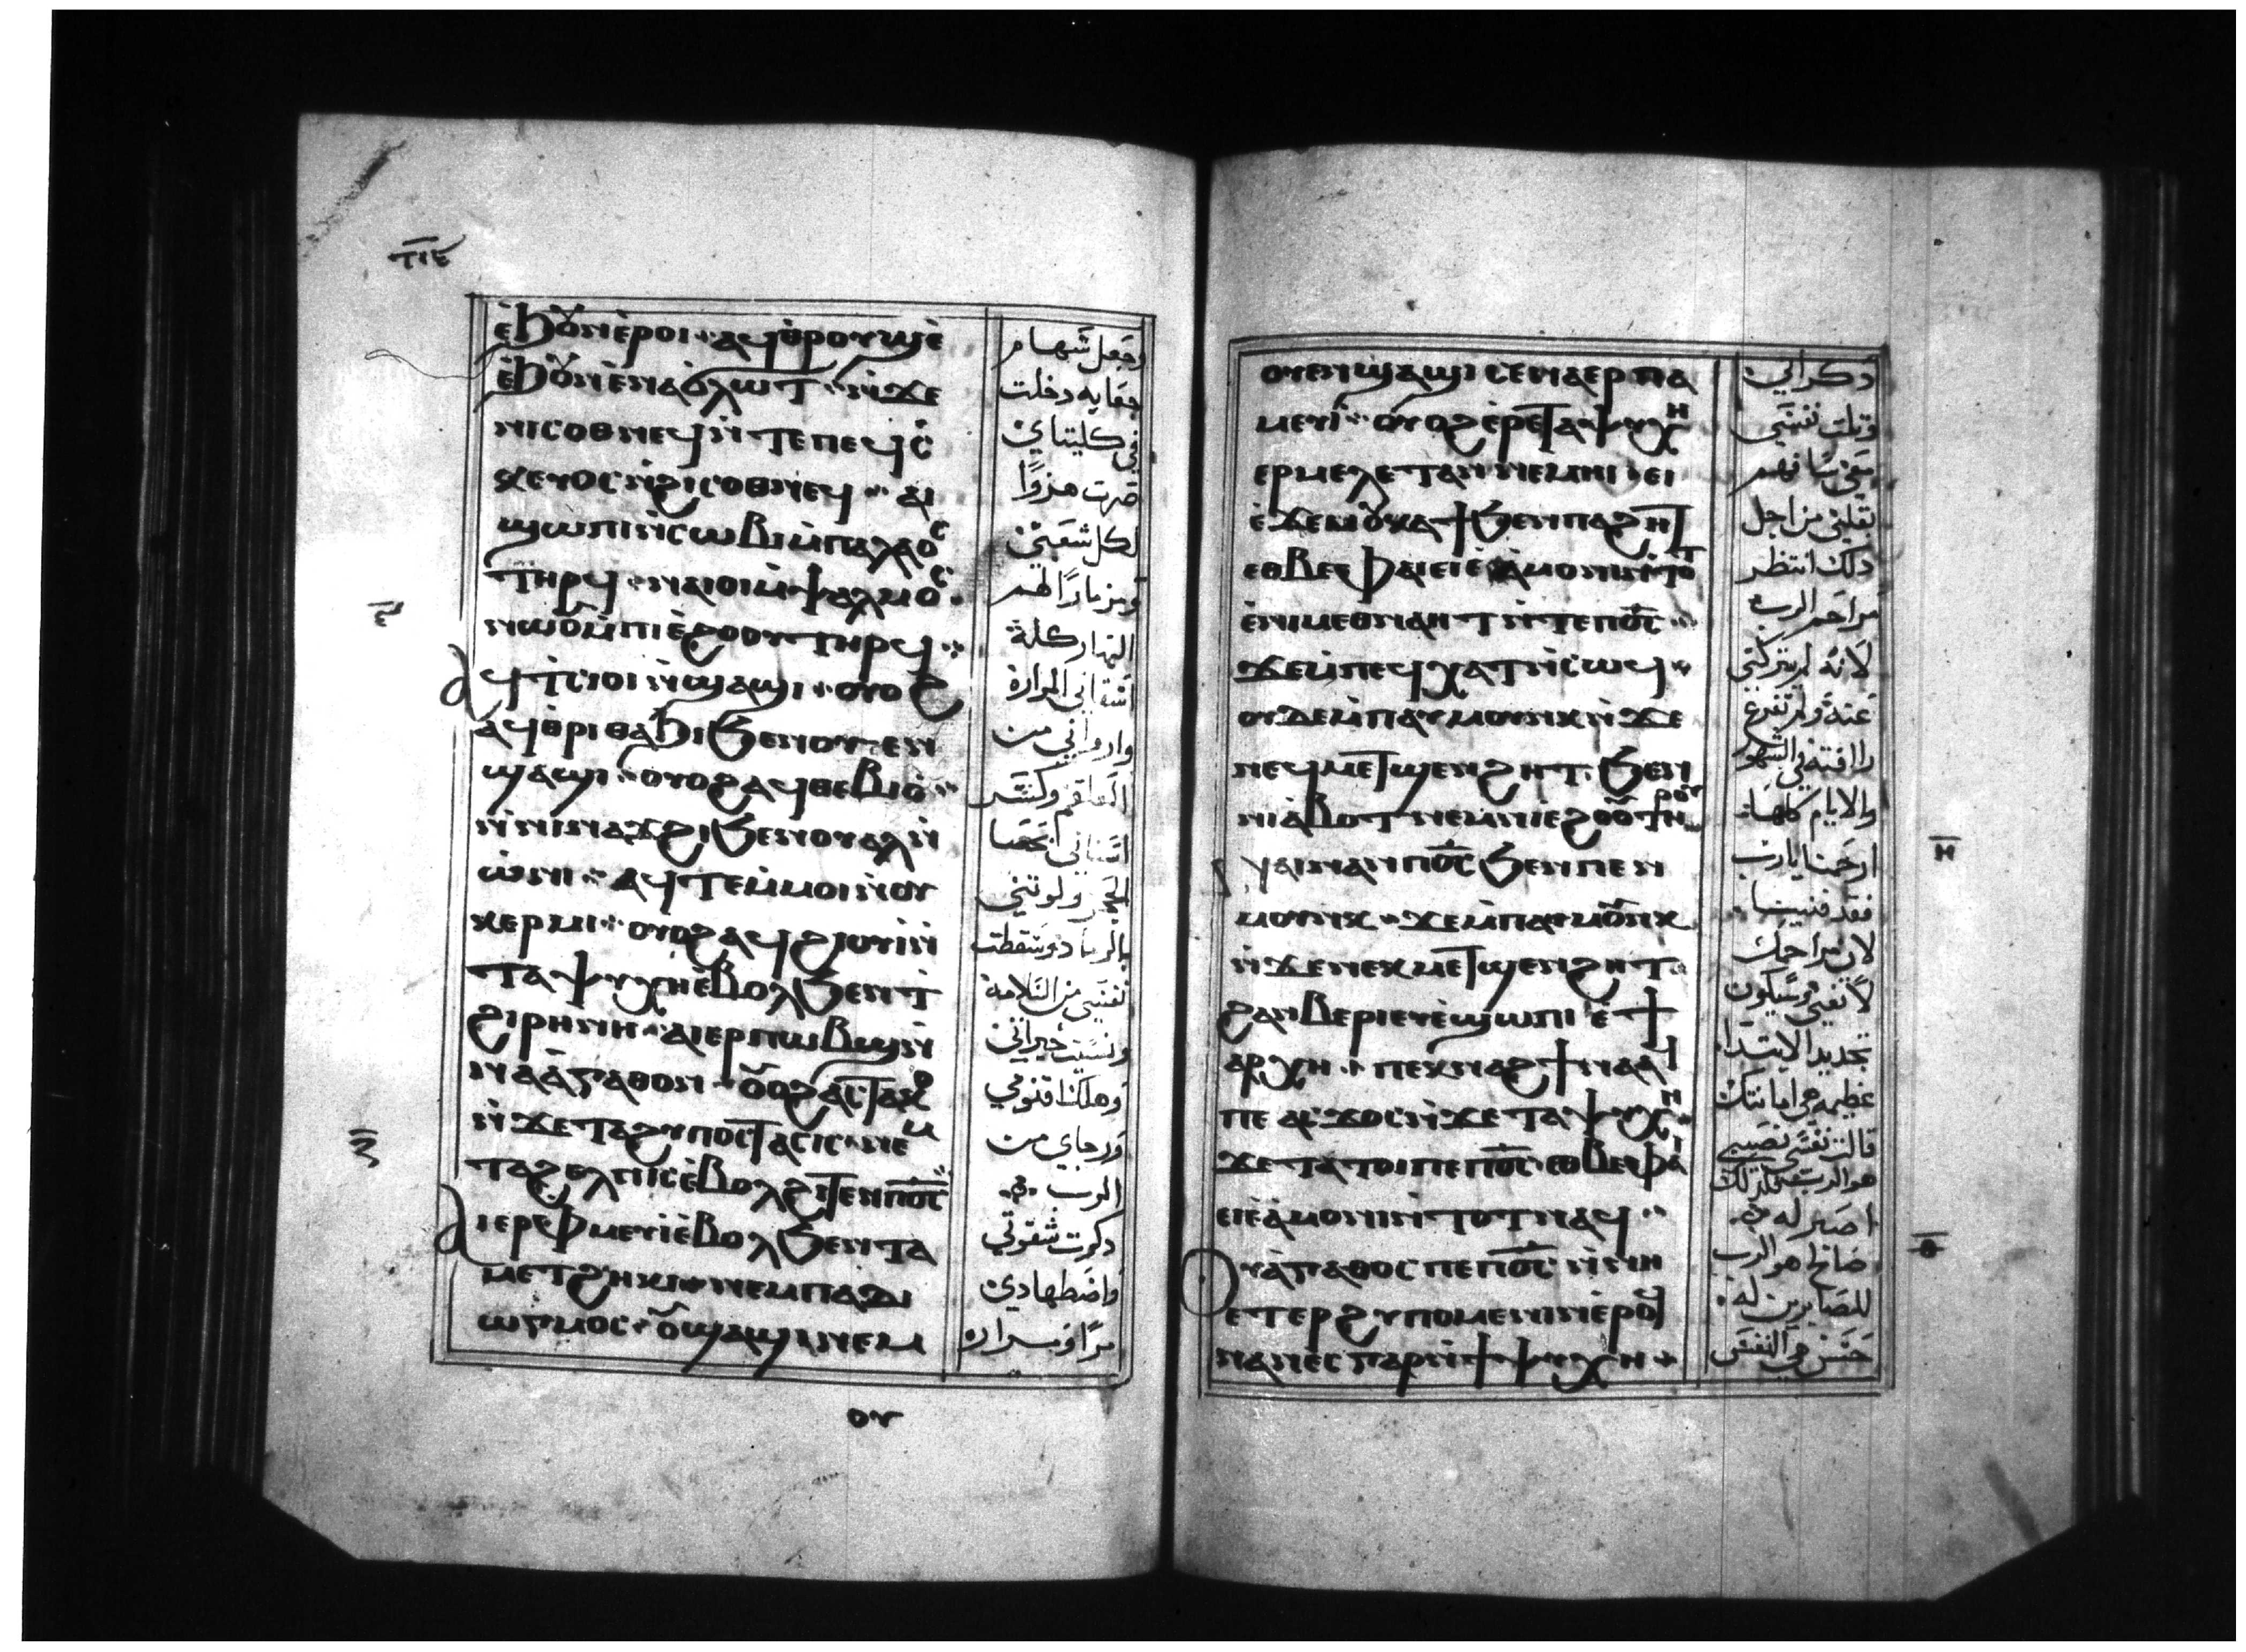 ⲧⲓⲉ
ⲉ̀ϧⲟⲩⲛⲉ̀ⲣⲟⲓ ⲁϥⲑⲣⲟⲩϣⲉ̀
ⲉ̀ϧⲟⲩⲛⲉ̀ⲛⲁϭⲗⲱⲧ ⲛ̀ϫⲉ
ⲛⲓⲥⲟⲑⲛⲉϥ ⲛ̀ⲧⲉⲡⲉϥⲥ̀
ⲕⲉⲩⲟⲥ ⲛ̀ϩⲓⲥⲟⲑⲛⲉϥ ⲁⲓ
ϣⲱⲡⲓⲛ̀ⲥⲱⲃⲓⲙ̀ⲡⲁⲗⲁⲟⲥ
ⲧⲏⲣϥ ⲛⲁⲓⲟⲓⲙ̀ⲯⲁⲗⲙⲟⲥ
ⲛⲱⲟⲩⲙ̀ⲡⲓⲉ̀ϩⲟⲟⲩⲧⲏⲣϥ
ϥⲧⲥⲓⲟⲓ ⲛ̀ϣⲁϣⲓ ⲟⲩⲟϩ
ⲁϥⲑⲣⲓⲑⲁϧⲓϧⲉⲛⲟⲩⲉⲛ
ϣⲁϣⲓ ⲟⲩⲟϩⲁϥⲑⲉⲃⲓⲟ
ⲛ̀ⲛⲓⲛⲁϫϩⲓϧⲉⲛⲟⲩⲁⲗⲛ̀
ⲱ̀ⲛⲓ ⲁϥⲧⲉⲙ̀ⲙⲟⲓⲛ̀ⲟⲩ
ⲕⲉⲣⲙⲓ ⲟⲩⲟϩⲁϥϩⲓⲟⲩⲓⲛ̀
ⲧⲁⲯⲩⲭⲏⲉ̀ⲃⲟⲗϧⲉⲛⲧ
ϩⲓⲣⲏⲛⲏ ⲁⲓⲉⲣⲡⲱⲃϣⲛ̀
ⲛⲁⲁ̀ⲅⲁⲑⲟⲛ ⲟⲩⲟϩⲁⲥϯⲁⲕⲟ
ⲛ̀ϫⲉⲧⲁϩⲩⲡⲟⲥϯⲁⲥⲓⲥ ⲛⲉⲙ
ⲧⲁϩⲉⲗⲡⲓⲥⲉ̀ⲃⲟⲗϩⲓⲧⲉⲛⲡⲟ̅ⲥ̅
ⲓⲉⲣⲉⲫⲙⲉⲩⲓⲉ̀ⲃⲟⲗϧⲉⲛⲧⲁ
ⲙⲉⲧϩⲏⲕⲓ ⲛⲉⲙⲡⲁⲇⲓ
ⲱⲅⲙⲟⲥ ⲟⲩϣⲁϣⲓⲛⲉⲙ
ⲟⲩ
وجعل سهام
جعابه دخلت
في كليتاي
صرت هزوًا
لكل شعبي
ومزمارًا لهم
النهار كله
اسقاني المرارة
وارواني من
العلقم وكسر
اسناني بالحصا
وهلك اقنومي
ورجاي من
الرب
ذكرت شقوتي
واضطهادي
مرًا ومراره
ⲟⲩⲉⲛϣⲁϣⲓ ⲥⲉⲛⲁⲉⲣⲡⲁ
ⲙⲉⲩⲓ ⲟⲩⲟϩⲉ̀ⲣⲉϯⲁⲯⲩⲭⲏ
ⲉⲣⲙⲉⲗⲉⲧⲁⲛⲛⲉⲙⲏⲓ ⲉⲓ
ⲉ̀ϫⲉⲙⲟ̀ⲕⲁⲧϧⲉⲛⲡⲁϩⲏϯ
ⲉⲑⲃⲉⲫⲁⲓⲉⲓⲉ̀ⲁ̀ⲙⲟⲛⲓⲛ̀ⲧⲟⲧ
ⲉ̀ⲛⲓⲙⲉⲑⲛⲁⲏⲧⲛ̀ⲧⲉⲡⲟ̅ⲥ̅
ϫⲉⲙ̀ⲡⲉϥⲭⲁⲧⲛ̀ⲥⲱϥ
ⲟⲩⲇⲉⲙ̀ⲡⲁⲩⲙⲟⲩⲛⲕⲛ̀ϫⲉ
ⲛⲉϥⲙⲉϯϣⲉⲛϩⲏⲧ ϧⲉⲛ
ⲛⲓⲁ̀ⲃⲟⲧⲛⲉⲙⲛⲓⲉϩⲟⲟⲩⲧⲏⲣⲟⲩ
ⲛⲁⲓⲛⲁⲛⲡⲟ̅ⲥ̅ϧⲉⲛⲡⲉⲛ
ⲙⲟⲩⲛⲕ ϫⲉⲙ̀ⲡⲁⲩⲙⲟⲩⲛⲕ
ⲛ̀ϫⲉⲛⲉⲕⲙⲉϯϣⲉⲛϩⲏⲧ
ϩⲁⲛⲃⲉⲣⲓⲉⲩⲉ̀ϣⲱⲡⲓ ⲉ̀ϯ
ⲁⲣⲭⲏ ⲡⲉⲕⲛⲁϩϯⲛⲁⲁϥ
ⲡⲉ ⲁⲥϫⲟⲥⲛ̀ϫⲉⲧⲁⲯⲩⲭⲏ
ϫⲉⲧⲁⲧⲟⲓⲡⲉⲡⲟ̅ⲥ̅ ⲉⲑⲃⲉⲫⲁⲓ
ⲉⲓⲉ̀ⲁ̀ⲙⲟⲛⲓⲛ̀ⲧⲟⲧⲛⲁϥ
ⲟⲩⲁ̀ⲅⲁⲑⲟⲥⲡⲉⲡⲟ̅ⲥ̅ ⲛ̀ⲛⲏ
ⲉⲧⲉⲣϩⲩⲡⲟⲙⲉⲛⲓⲛⲓⲉ̀ⲣⲟϥ
ⲛⲁⲛⲉⲥ ⲡⲁⲣⲛ̀ϯⲯⲩⲭⲏ
ⲏ
ⲑ
ذكراني
وتلت نفسي
بقلبي من اجل
ذلك انتظر
مراحم الرب
لانه لم يتركني
عنه ولم تفرغ
رافته في الشهور
والايام كلها
ارحمنا يارب
فقد فنينا
لان مراحمك
لا تفنى وسيكون
تجديد الابتدا
عظيمه هي امانتك
قالت نفسي نصيبي
هو الرب فلذلك
اصبر له
صالح هو الرب
للصابرين له
حسن هي النفس